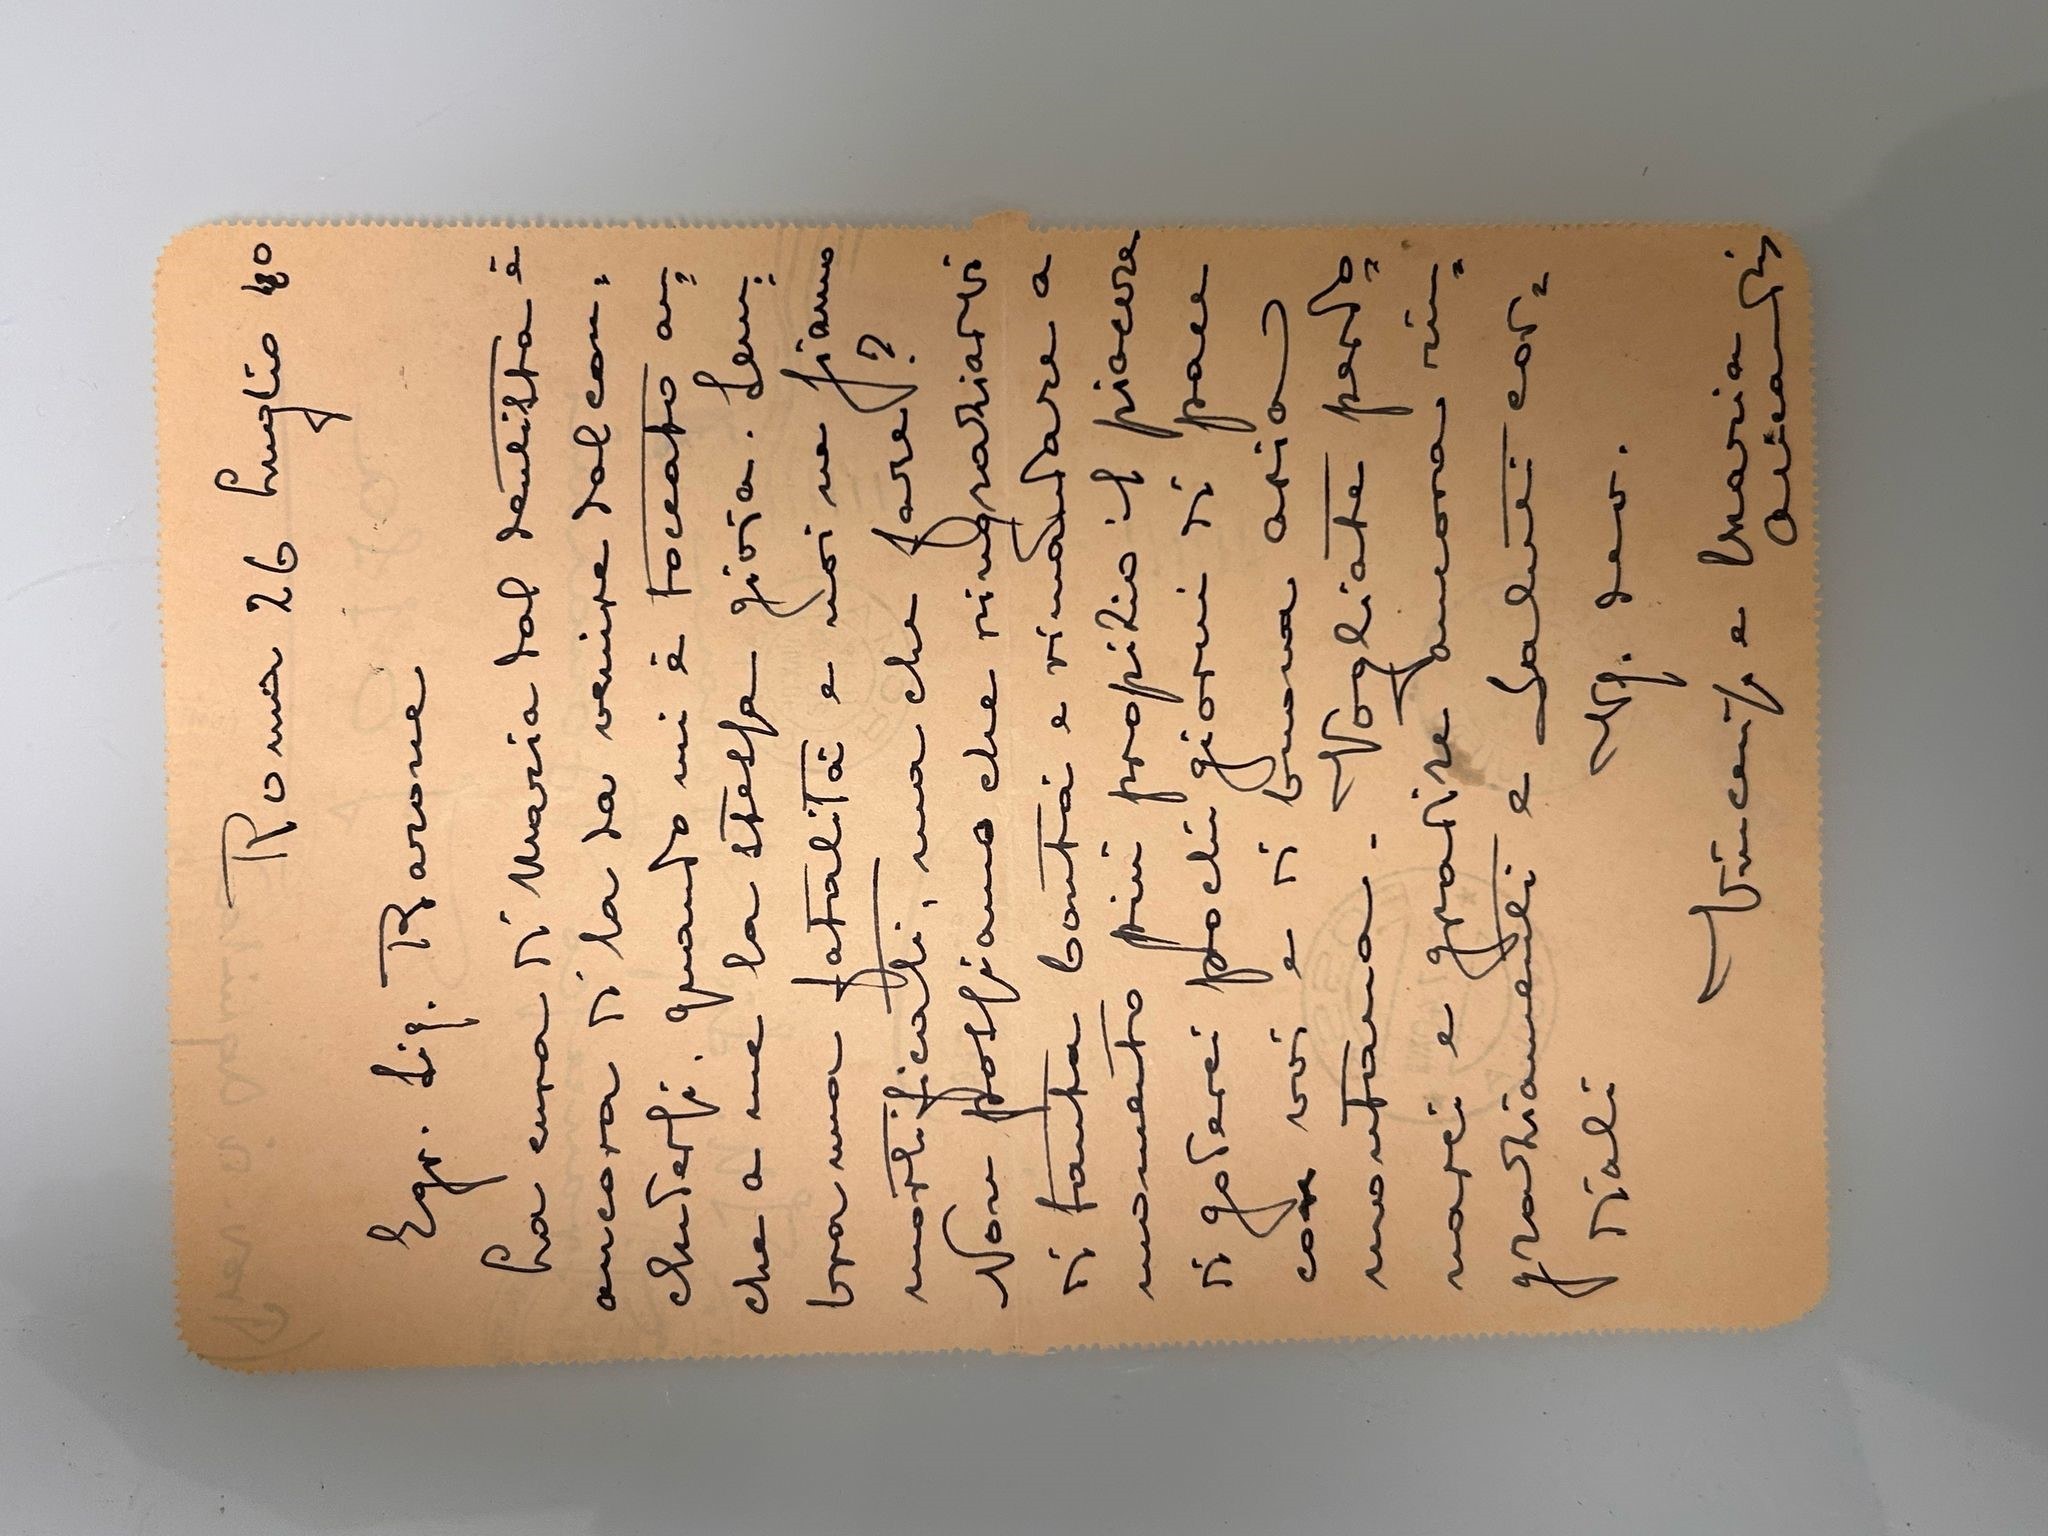 Roma 26 luglio 40
Egr. Sig. Barone
La cura di Maria dal dentista è
ancora di la da venire dal con=
chudersi. Quando mi è toccato an=
che a me la stessa sjovia. Sem=
bra una fatalità e noi ne siamo
mortificati, ma che fare?
Non possiamo che ringraziarvi
di tanta bontà e rimandare a
momento più propizio il piacere
di goderci pochi giorni di pace
con voi e di buona aria
montana. Vogliate perdo=
narci e gradire ancora rin=
graziamenti e saluti cor=
diali
Vs. dev.
Vincenzo e Maria